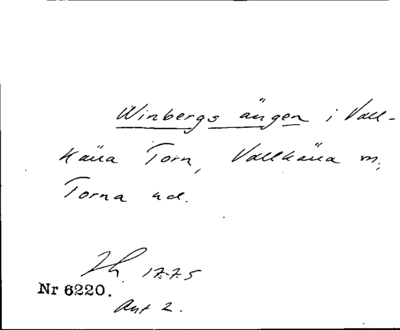 Winbergs ängen i Vall-
källa Torn, Vallkälla m,
Torna hd.
1775
Nr 6220.
Ant 2.